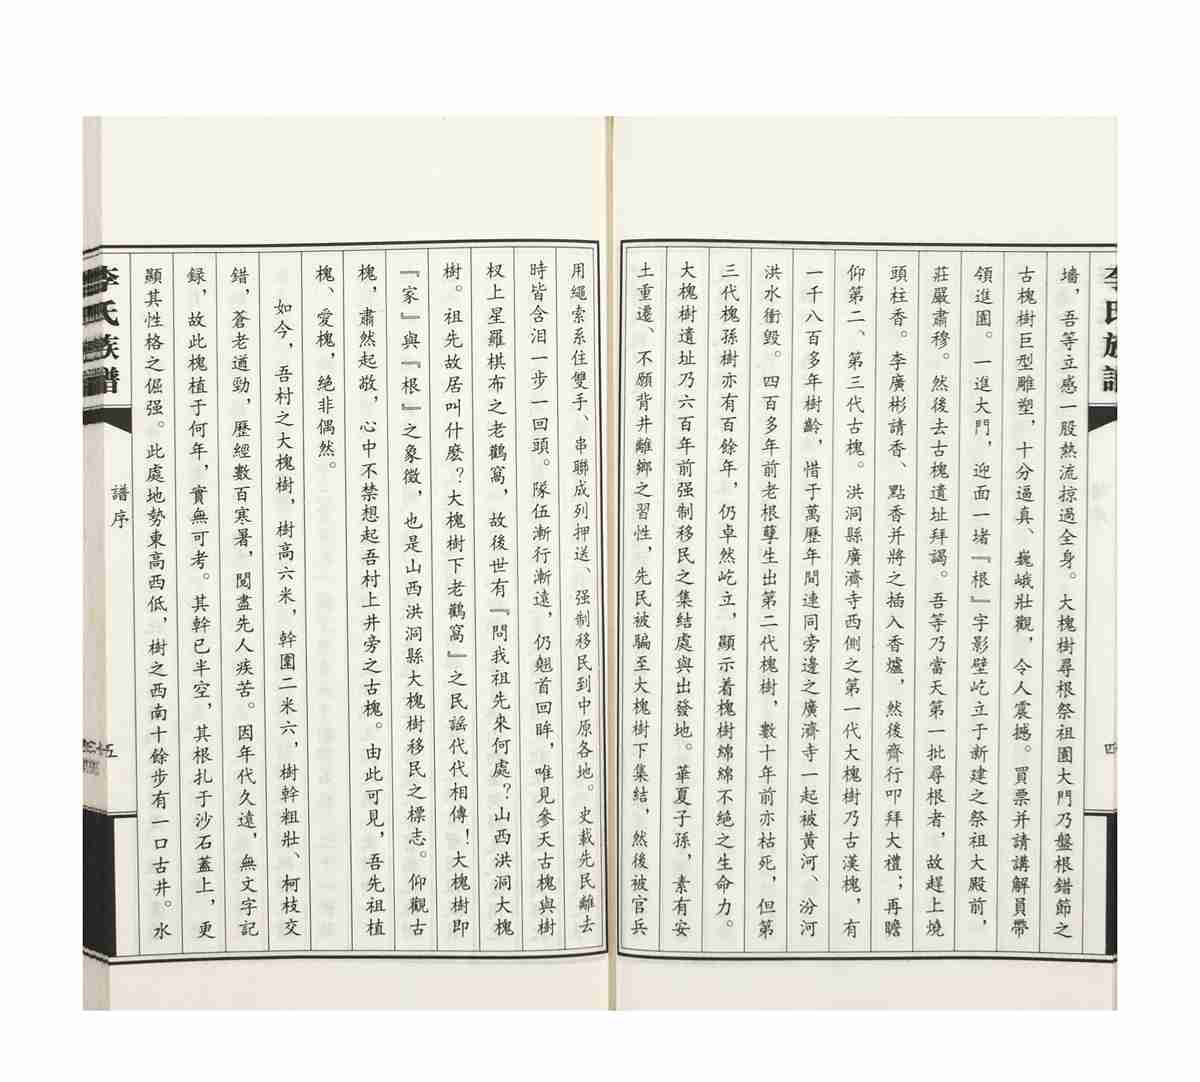 李氏族譜
墻，吾等立感一股熱流掠過全身。大槐樹尋根祭祖園大門乃盤根錯節之
古槐樹巨型雕塑，十分逼真、巍峨壯觀，令人震撼。買票并請講解員帶
領進園。一進大門，迎面一堵『根』字影壁屹立于新建之祭祖大殿前，
莊嚴肅穆。然後去古槐遺址拜謁。吾等乃當天第一批尋根者，故趕上燒
頭柱香。李廣彬請香、點香并將之插入香爐，然後齊行叩拜大禮；再瞻
仰第二、第三代古槐。洪洞縣廣濟寺西側之第一代大槐樹乃古漢槐，有
一千八百多年樹齡，惜于萬歷年間連同旁邊之廣濟寺一起被黃河、汾河
洪水衝毀。四百多年前老根孽生出第二代槐樹，數十年前亦枯死，但第
三代槐孫樹亦有百餘年，仍卓然屹立，顯示着槐樹綿綿不絕之生命力。
大槐樹遺址乃六百年前强制移民之集結處與出發地。華夏子孫，素有安
土重遷、不願背井離鄉之習性，先民被騙至大槐樹下集結，然後被官兵
用繩索系住雙手、串聯成列押送、强制移民到中原各地。史載先民離去
時皆含泪一步一回頭。隊伍漸行漸遠，仍翹首回眸，唯見參天古槐與樹
杈上星羅棋布之老鸛窩，故後世有『問我祖先來何處？山西洪洞大槐
樹。祖先故居叫什麽？大槐樹下老鸛窩』之民謡代代相傳！大槐樹即
『家』與『根』之象徵，也是山西洪洞縣大槐樹移民之標志。仰觀古
槐，肅然起敬，心中不禁想起吾村上井旁之古槐。由此可見，吾先祖植
槐、愛槐，絕非偶然。
如今，吾村之大槐樹，樹高六米，幹圍二米六，樹幹粗壯、柯枝交
錯，蒼老遒勁，歷經數百寒暑，閱盡先人疾苦。因年代久遠，無文字記
録，故此槐植于何年，實無可考。其幹已半空，其根扎于沙石蓋上，更
顯其性格之倔强。此處地勢東高西低，樹之西南十餘步有一口古井。水
李氏族譜
譜序